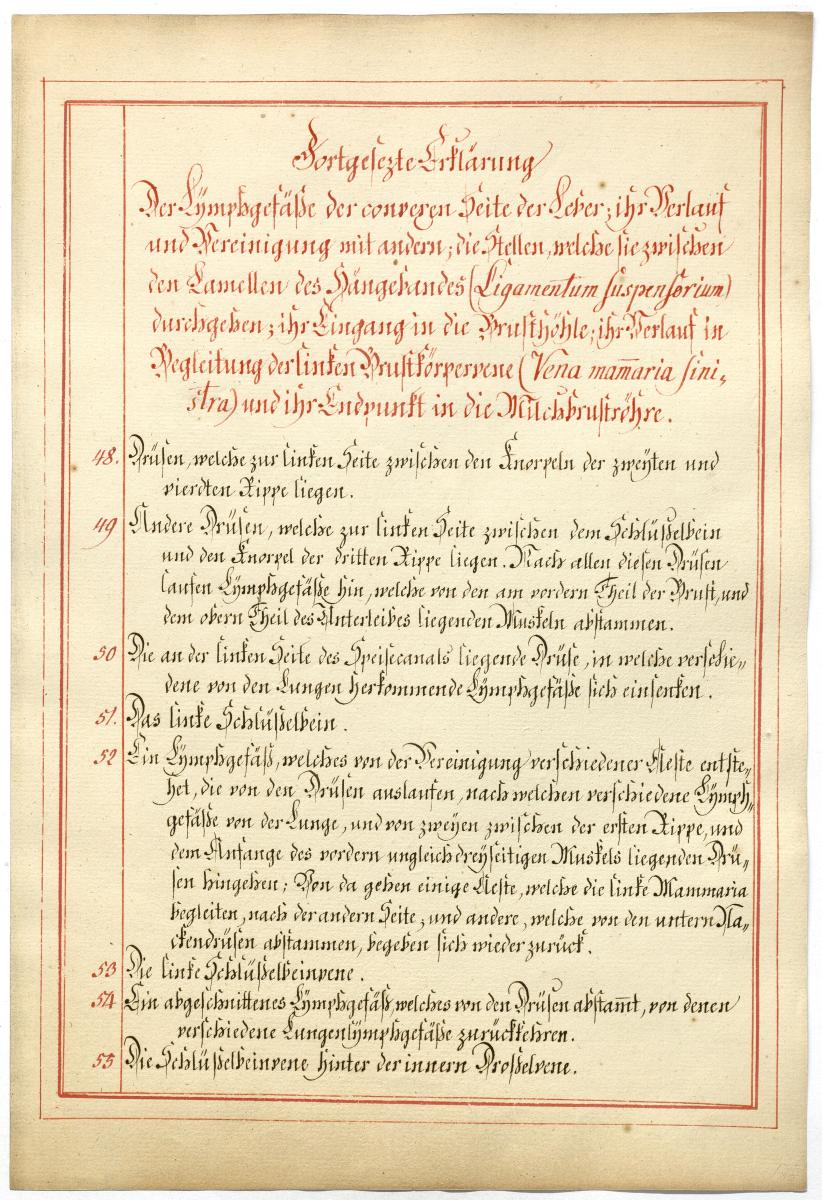 Fortgesezte Erklärung
Der Lÿmphgefäße der convexen Seite der Leber; ihr Verlauf
und Vereinigung mit andern; die Stellen, welche sie zwischen
den Lamellen des Hängebandes (Ligamentum suspensorium)
durchgehen; ihr Eingang in die Brusthöhle; ihr Verlauf in
Begleitung der linken Brustkörpervene (Vena mam̅aria sini-
stra) und ihr Endpunkt in die Milchbruströhre.
48. Drüsen, welche zur linken Seite zwischen den Knorpeln der zweÿten und
vierdten Rippe liegen.
49 Andere Drüsen, welche zur linken Seite zwischen dem Schlüßelbein
und den Knorpel der dritten Rippe liegen. Nach allen diesen Drüsen
laufen Lÿmphgefäße hin, welche von den am vordern Theil der Brust, und
dem obern Theil des Unterleibes liegenden Muskeln abstammen.
50 Die an der linken Seite des Speisecanals liegende Drüse, in welche verschie-
dene von den Lungen herkommende Lÿmphgefäße sich einsenken.
51. Das linke Schlüßelbein.
52 Ein Lÿmphgefäß, welches von der Vereinigung verschiedener Aeste entste-
het, die von den Drüsen auslaufen, nach welchen verschiedene Lÿmph-
gefäße von der Lunge, und von zweÿen zwischen der ersten Rippe, und
dem Anfange des vordern ungleichdreÿseitigen Muskels liegenden Drü-
sen hingehen; Von da gehen einige Aeste, welche die linke Mammaria
begleiten, nach der andern Seite; und andere, welche von den untern Na-
ckendrüsen abstammen, begeben sich wieder zurück.
53 Die linke Schlüßelbeinvene.
54 Ein abgeschnittenes Lÿmphgefäß, welches von den Drüsen abstam̅t, von denen
verschiedene Lungenlÿmphgefäße zurückkehren.
55 Die Schlüßelbeinvene hinter der innern Droßelvene.